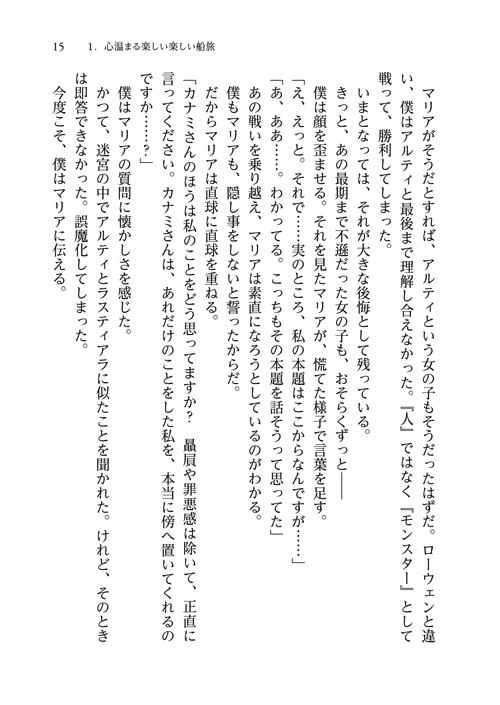 15　1．心温まる楽しい楽しい船旅
　マリアがそうだとすれば、アルティという女の子もそうだったはずだ。ローウェンと違
い、僕はアルティと最後まで理解し合えなかった。『人』ではなく『モンスター』として
戦って、勝利してしまった。
　いまとなっては、それが大きな後悔として残っている。
　きっと、あの最期まで不遜だった女の子も、おそらくずっと――
　僕は顔を歪ませる。それを見たマリアが、慌てた様子で言葉を足す。
「え、えっと。それで……実のところ、私の本題はここからなんですが……」
「あ、ああ……。わかってる。こっちもその本題を話そうって思ってた」
　あの戦いを乗り越え、マリアは素直になろうとしているのがわかる。
　僕もマリアも、隠し事をしないと誓ったからだ。
　だからマリアは直球に直球を重ねる。
「カナミさんのほうは私のことをどう思ってますか？　贔屓や罪悪感は除いて、正直に
言ってください。カナミさんは、あれだけのことをした私を、本当に傍へ置いてくれるの
ですか……？」
　僕はマリアの質問に懐かしさを感じた。
　かつて、迷宮の中でアルティとラスティアラに似たことを聞かれた。けれど、そのとき
は即答できなかった。誤魔化してしまった。
　今度こそ、僕はマリアに伝える。